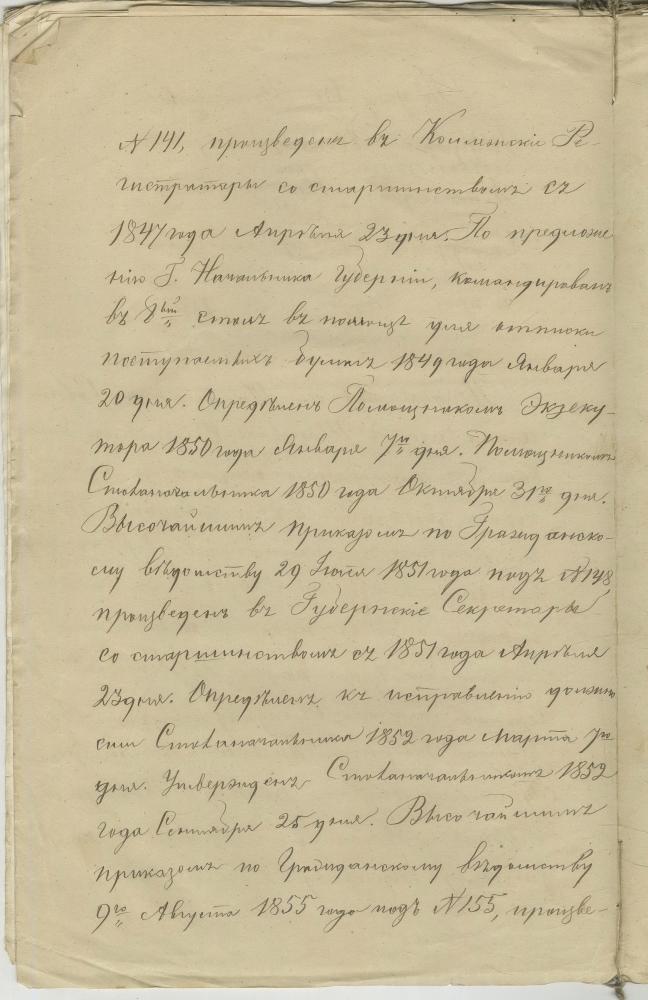 № 141, произведенъ въ Коллежскіе Ре-
гистраторы со старшинствомъ съ
1847 года Апрѣля 23 дня. По предложе
нію Г. Начальника Губерніи, командированъ
въ 8ый столъ въ помощь для отписки
поступаемыхъ бумагъ 1849 года Января
20 дня. Опредѣленъ Помощникомъ Экзеку-
тора 1850 года Января 7го дня. Помощникомъ
Столоначальника 1850 года Октября 31го дня.
Высочайшимъ приказомъ по Гражданско-
му вѣдомству 29 Іюля 1851 года подъ № 148,
произведенъ въ Губернскіе Секретари
со старшинствомъ съ 1851 года Апрѣля
23 дня. Опредѣленъ къ исправленію должно
сти Столоначальника 1852 года Марта 7го
дня. Утвержденъ Столоначальникомъ 1852
года Сентября 25 дня. Высочайшимъ
приказомъ по Гражданскому вѣдомству
9го Августа 1855 года подъ № 155, произве-